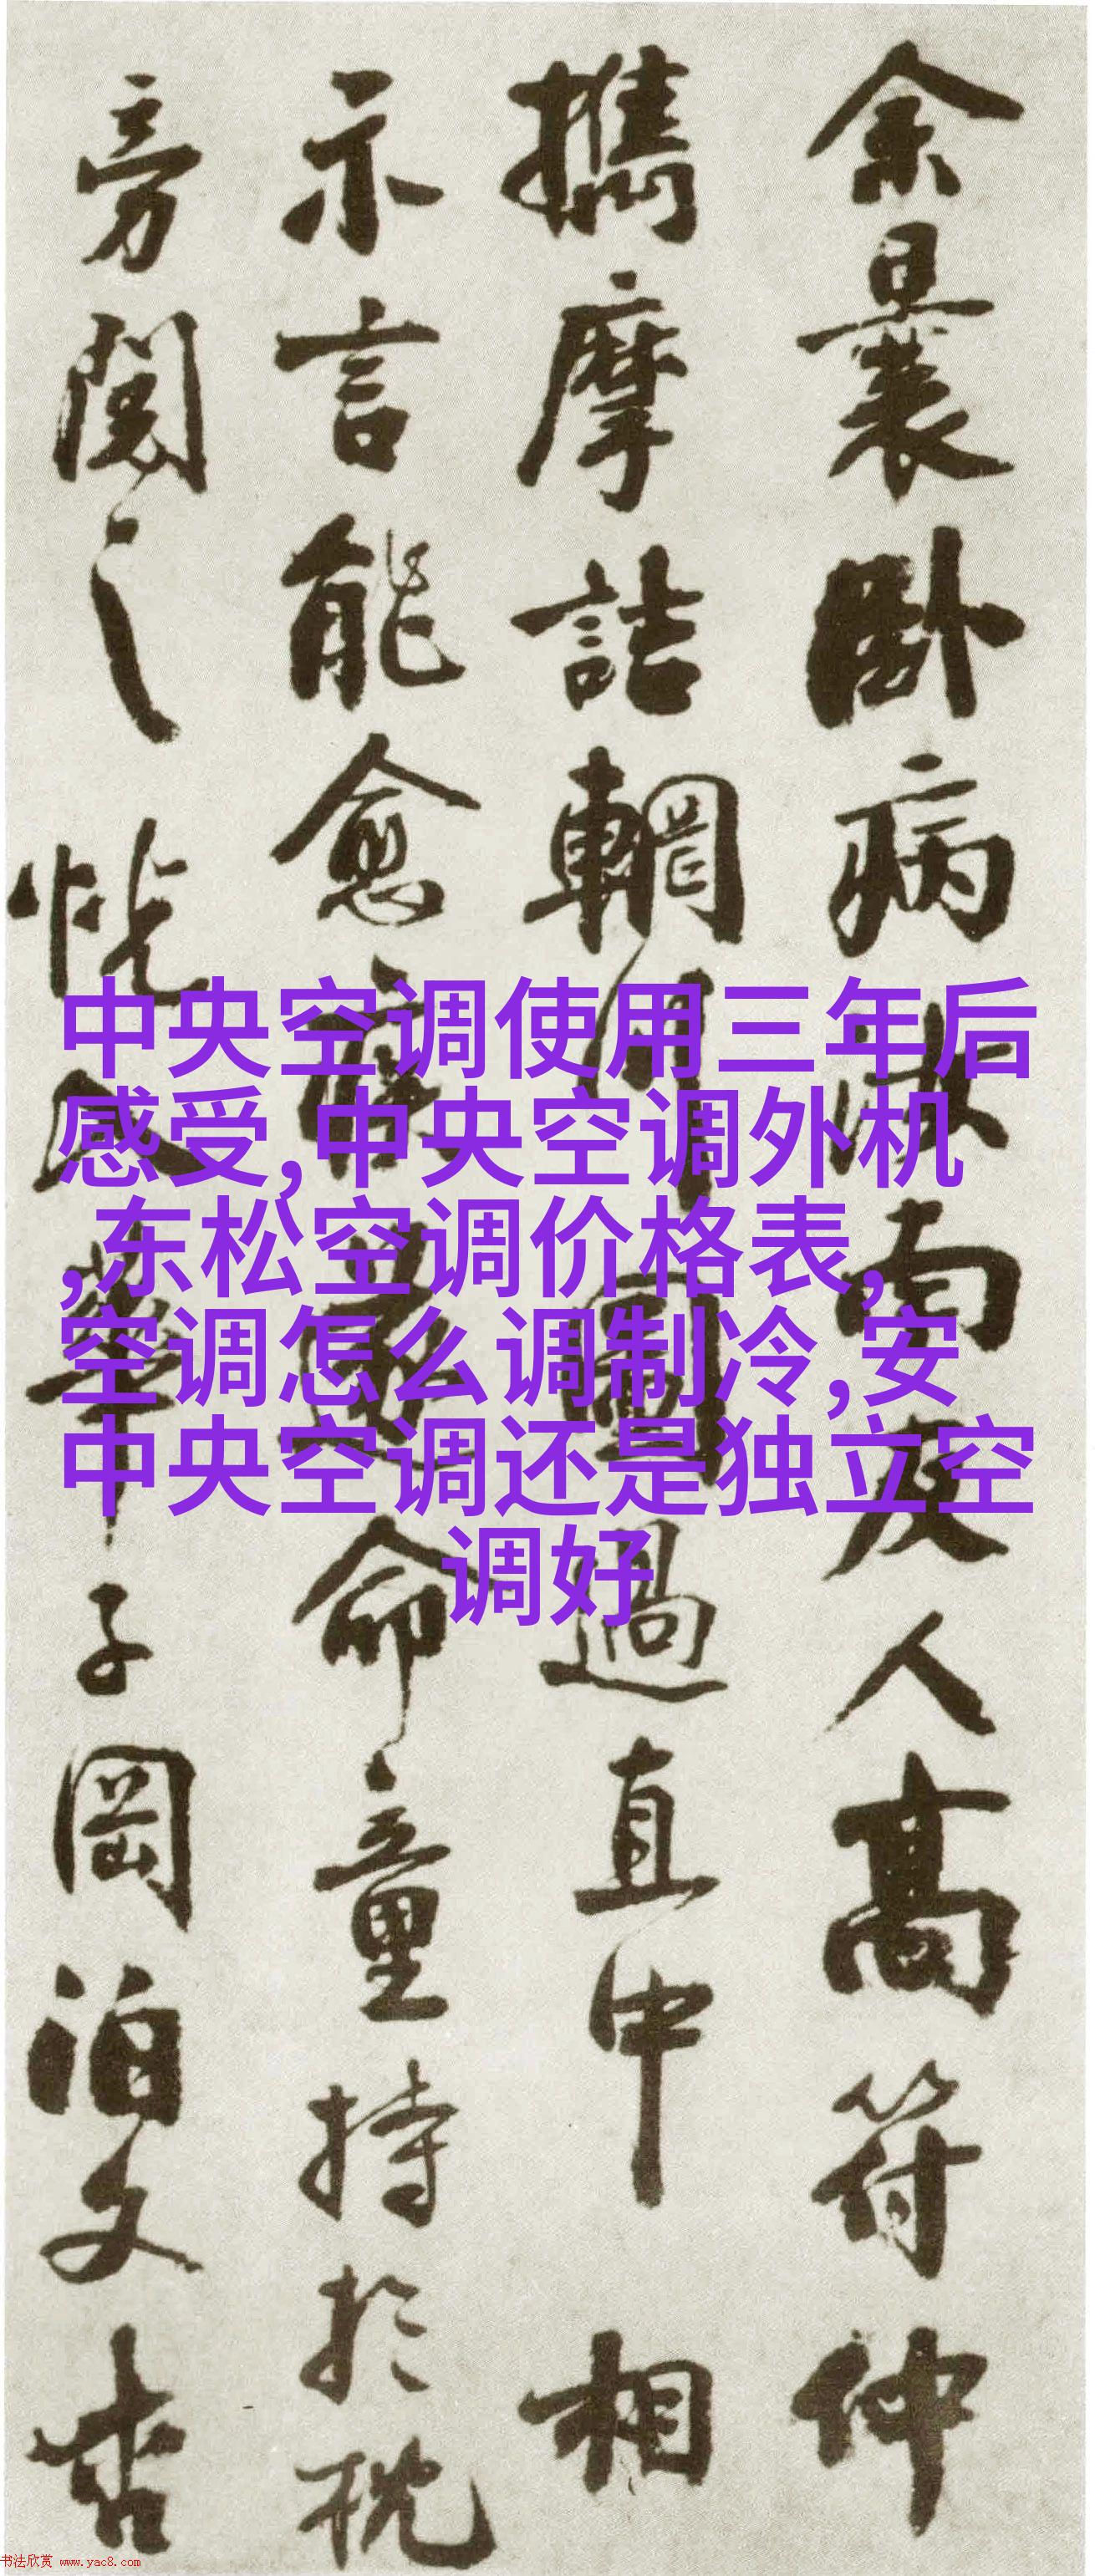 余曩卧病汝南友人高符仲
攜摩詰輞川圖過直中相
示言能愈疾遂命童持於枕
旁閱之恍入華子岡泊文杏
中央空调使用三年后
感受,中央空调外机
,东松空调价格表,
空调怎么调制冷,安
中央空调还是独立空
调好
书法欣赏 www.yac8.com